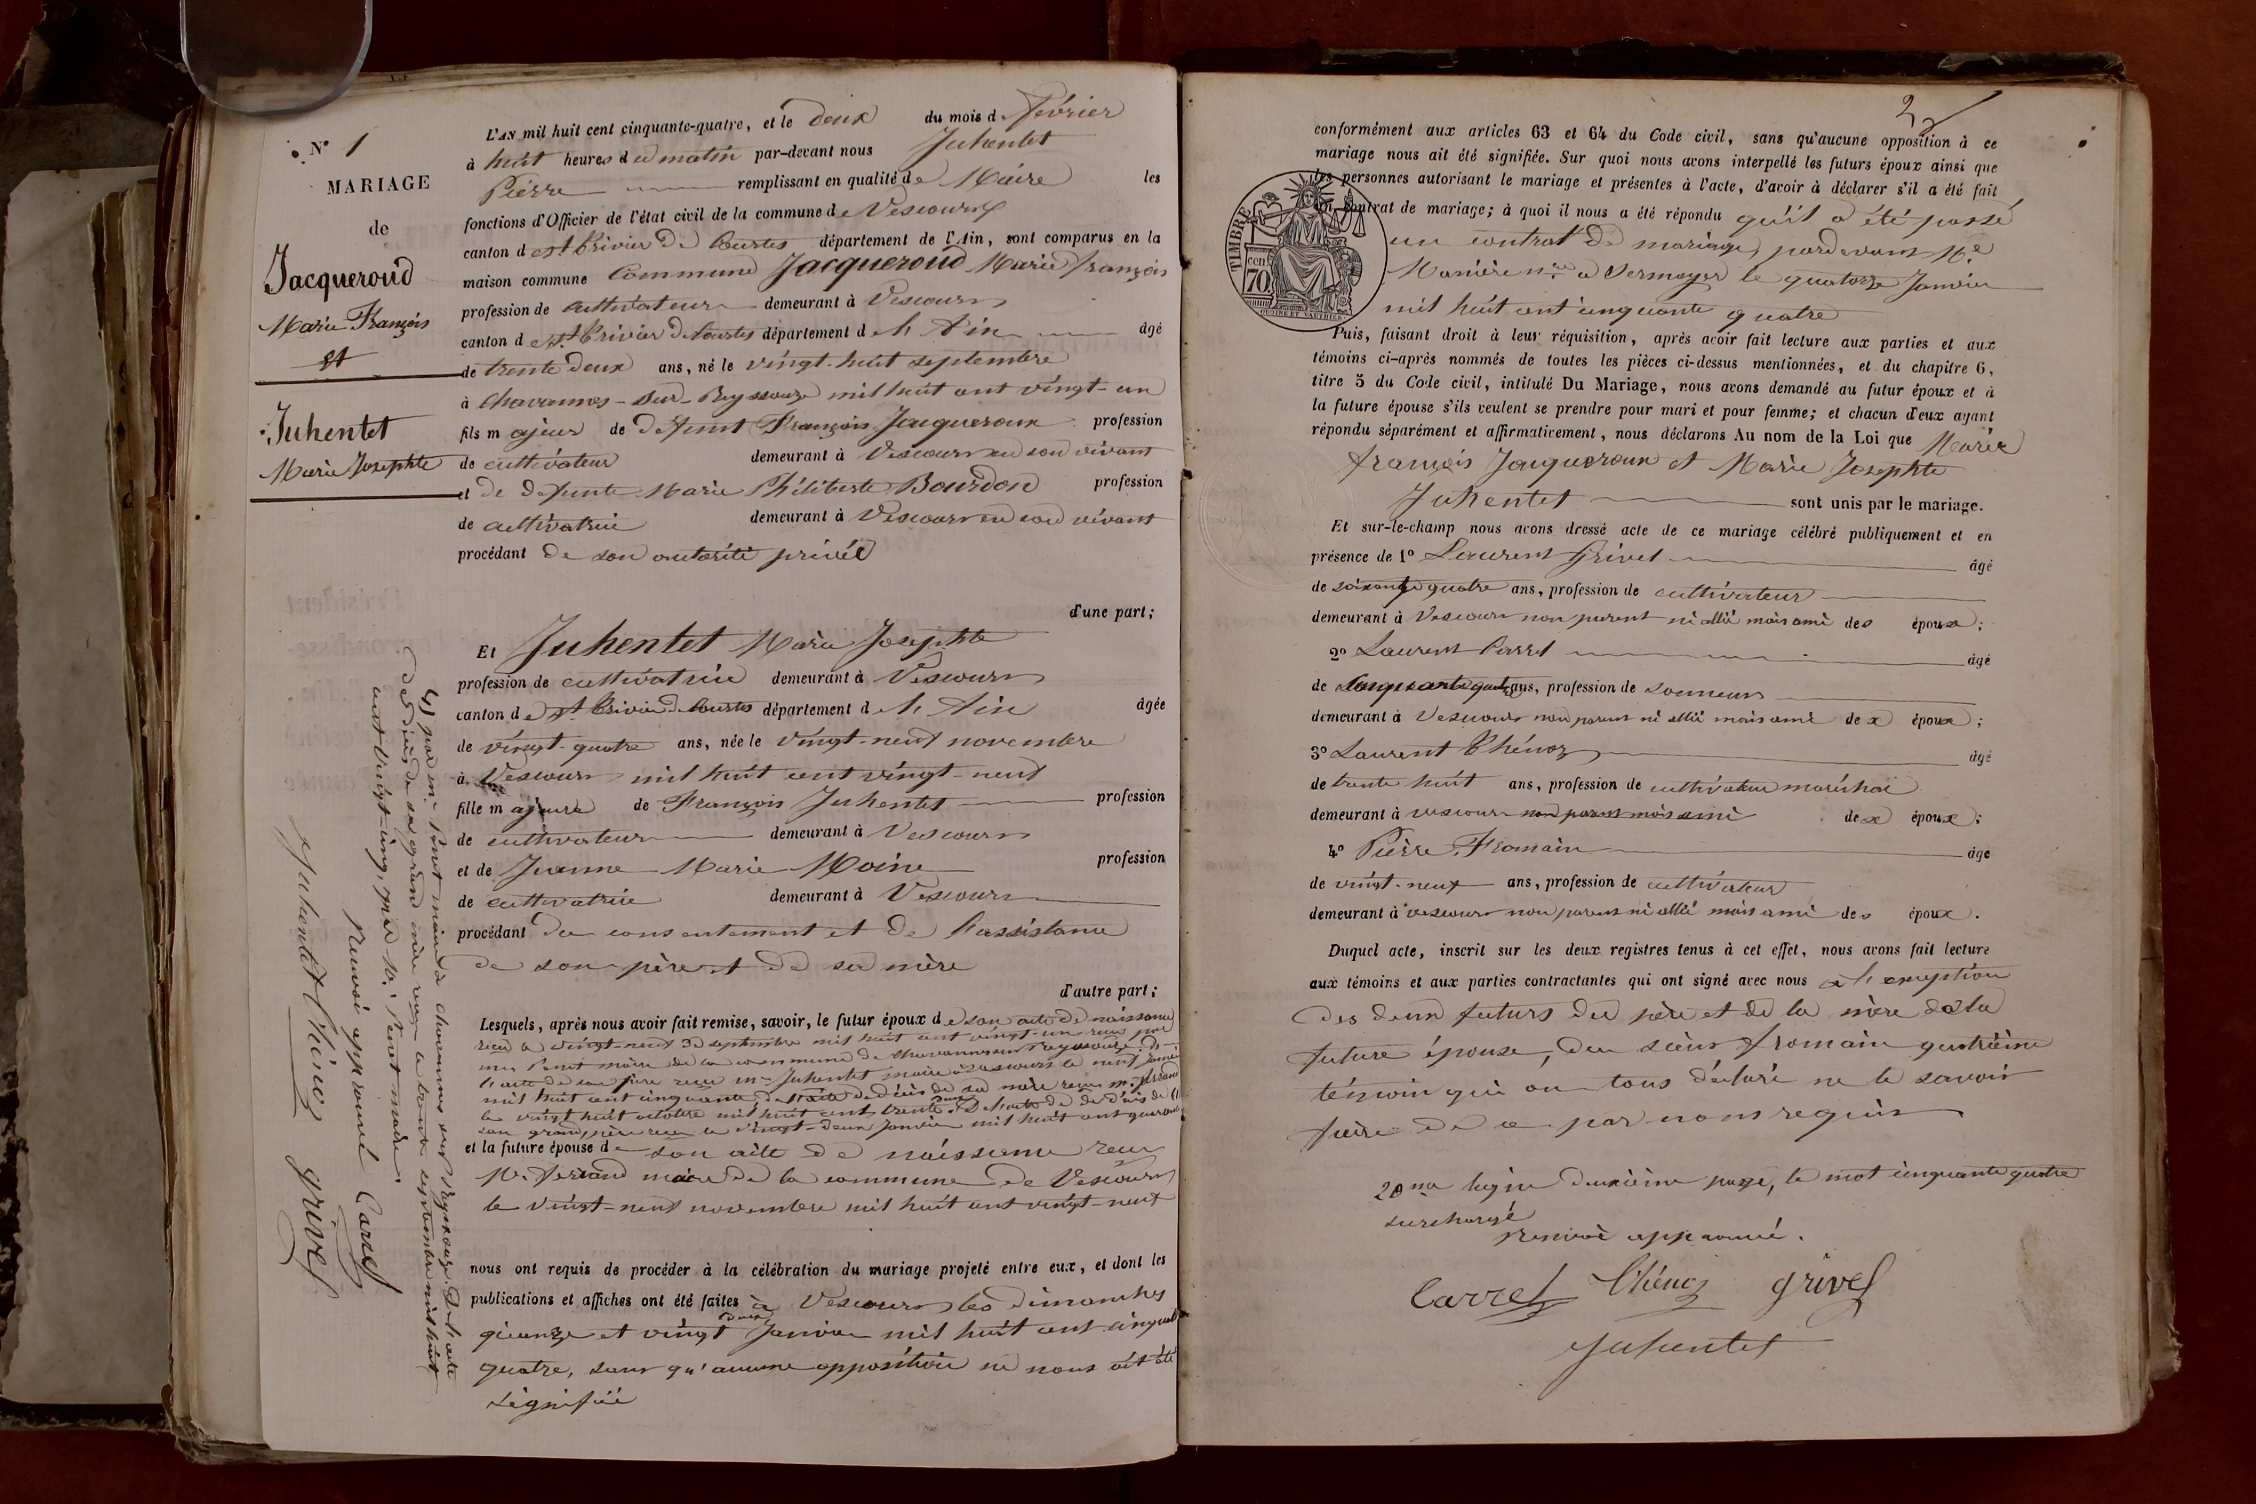 N° 1
MARIAGE
de
Jacqueroud
Marie François
et
Juhentet
Marie Josephte
L'AN mil huit cent cinquante-quatre, et le deux du mois de Février
à huit heures du matin par-devant nous Juhentet
Pierre remplissant en qualité de Maire les
fonctions d'Officier de l'état civil de la commune de Vescours
canton de St Trivier de Courtes département de l'Ain, sont comparus en la
maison commune Commune Jacqueroud Marie François
profession de cultivateur demeurant à Vescours
canton de St Trivier de Courtes département de l'Ain âgé
de trente deux ans, né le vingt-huit septembre
à Chavannes-sur-Reyssouze mil huit cent vingt-un
fils majeur de défunt François Jacqueroux profession
de cultivateur demeurant à Vescours en son vivant
et de défunte Marie Philiberte Bourdon profession
de cultivatrice demeurant à Vescours en son vivant
procédant de son autorité privée
d'une part;
Et Juhentet Marie Josephte
profession de cultivatrice demeurant à Vescours
canton de St Trivier de Courtes département de l'Ain âgée
de vingt-quatre ans, née le vingt-neuf novembre
à Vescours mil huit cent vingt-neuf
fille majeure de François Juhentet profession
de cultivateur demeurant à Vescours
et de Jeanne Marie Moine profession
de cultivatrice demeurant à Vescours
procédant du consentement et de l'assistance
de son père et de sa mère
d'autre part;
Lesquels, après nous avoir fait remise, savoir, le futur époux de son acte de naissance
reçu le vingt-neuf septembre mil huit cent vingt-un reçu par
maire de la commune de Chavannes sur Reyssouze; de
l'acte de son père reçu Mr Juhentet maire à Vescours le neuf janvier
mil huit cent cinquante de l'acte de décès de sa mère reçu
le vingt huit octobre mil huit cent trente deux de l'acte de décès de
son grand père reçu le vingt-deux janvier mil huit cent quarante
et la future épouse de son acte de naissance reçu
Mr Feriand maire de la commune de Vescours
le vingt-neuf novembre mil huit cent vingt-neuf
nous ont requis de procéder à la célébration du mariage projeté entre eux, et dont les
publications et affiches ont été faites à Vescours les dimanches
quinze et vingt deux Janvier mil huit cent cinquante
quatre, sans qu'aucune opposition ne nous ait été
signifiée
par mr Penot maire à Chavannes sur Reyssouze. De l'acte
de décès de sa grand mère reçu le trente septembre mil huit
cent vingt-cinq, par Mr Penot maire.
Renvoi approuvé Carrel
Juhentet Thénoz grivel
2
TIMBRE
cen
70
conformément aux articles 63 et 64 du Code civil, sans qu'aucune opposition à ce
mariage nous ait été signifiée. Sur quoi nous avons interpellé les futurs époux ainsi que
les personnes autorisant le mariage et présentes à l'acte, d'avoir à déclarer s'il a été fait
un contrat de mariage; à quoi il nous a été répondu qu'il a été passé
un contrat de mariage, pardevant Me
Manière nre a Sermoyer le quatorze Janvier
mil huit cent cinquante quatre
Puis, faisant droit à leur réquisition, après avoir fait lecture aux parties et aux
témoins ci-après nommés de toutes les pièces ci-dessus mentionnées, et du chapitre 6,
titre 5 du Code civil, intitulé Du Mariage, nous avons demandé au futur époux et à
la future épouse s'ils veulent se prendre pour mari et pour femme; et chacun d'eux ayant
répondu séparément et affirmativement, nous déclarons Au nom de la Loi que Marie
François Jacqueroux et Marie Josephte
Juhentet sont unis par le mariage.
Et sur-le-champ nous avons dressé acte de ce mariage célébré publiquement et en
présence de 1° Laurent Grivel âgé
de soixante quatre ans, profession de cultivateur
demeurant à Vescours non parent ni allié mais ami des époux;
2° Laurent Carrel âgé
de cinquante quatre ans, profession de sonneur
demeurant à Vescours non parent ni allié mais ami des époux;
3° Laurent Thénoz âgé
de trente huit ans, profession de cultivateur maréchal
demeurant à vescours non parent mais ami des époux;
4° Pierre Fromain âgé
de vingt-neuf ans, profession de cultivateur
demeurant à vescours non parent ni allié mais ami des époux.
Duquel acte, inscrit sur les deux registres tenus à cet effet, nous avons fait lecture
aux témoins et aux parties contractantes qui ont signé avec nous à l'exception
des deux futurs du père et de la mère de la
future épouse, du sieur Fromain quatrième
témoin qui ont tous déclaré ne le savoir
faire de ce par nous requis
20me ligne deuxième page, le mot cinquante quatre
surchargé
Renvoi approuvé.
Carrel Thénoz grivel
Juhentet